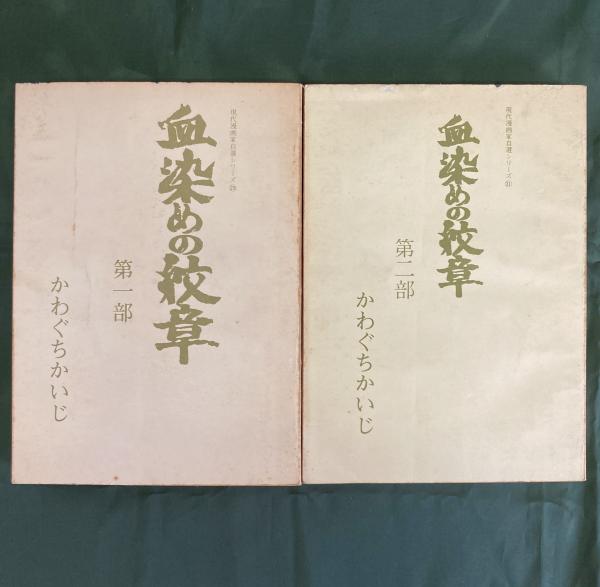 現代漫画家自選シリーズ
血染めの紋章
第一部
かわぐちかいじ
現代漫画家自選シリーズ㉛
血染めの紋章
第二部
かわぐちかいじ